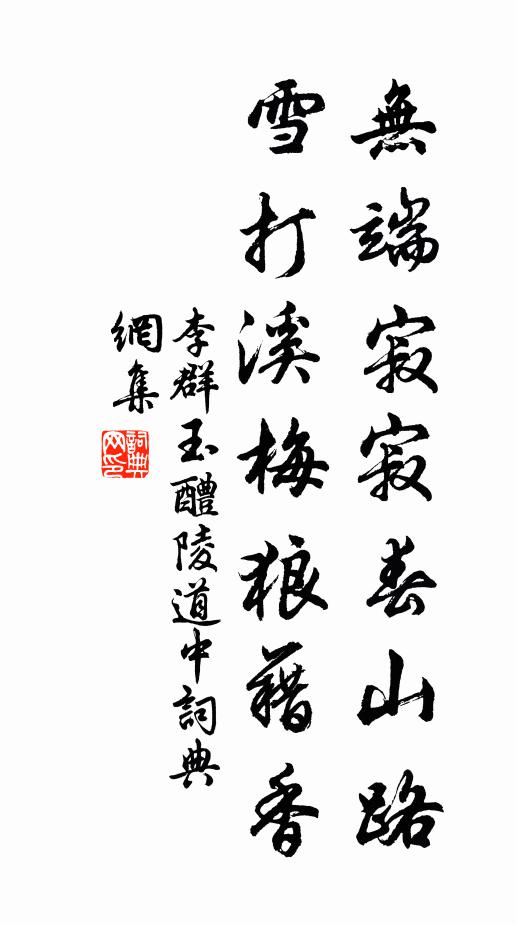 無端寂寂春山路
雪打溪梅狼藉香
李群玉醴陵道中詞典
網集
詞典
网印